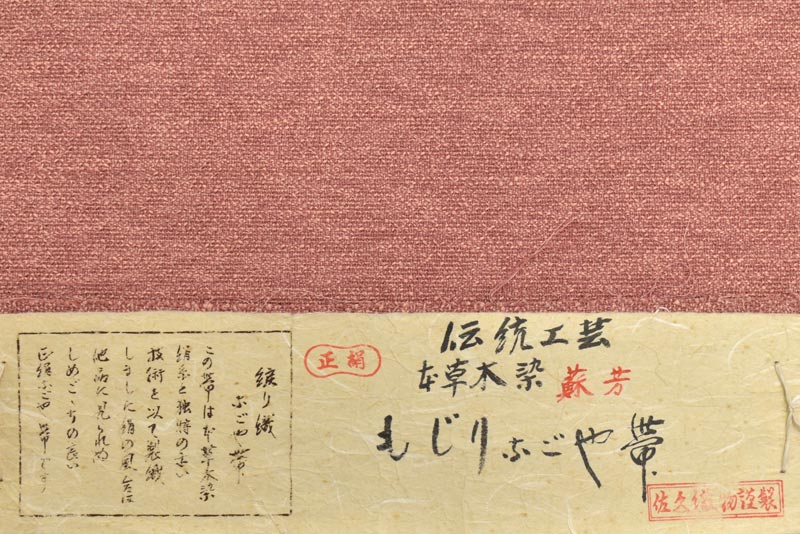 伝統工芸
正絹
本草木染 蘇芳
もじりなごや帯
佐久織物謹製
綟り織
なごや帯
この帯は本草木染
絹糸と独特の高い
技術を以て製織
しました絹の風合は
他品に見られぬ
しめごこちの良い
正絹なごや帯です